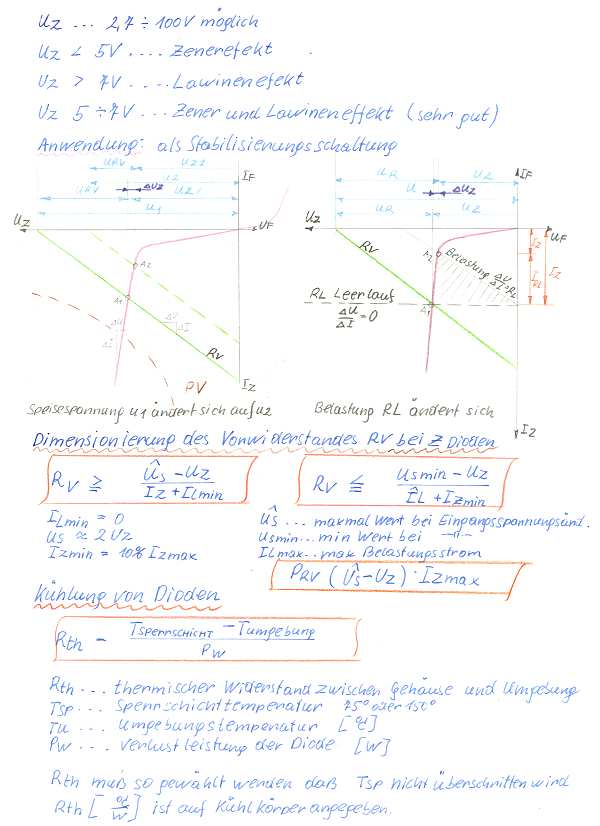 UZ ... 2,7 ÷ 100V möglich
UZ < 5V .... Zenerefekt
UZ > 7V .... Lawinenefekt
UZ 5 ÷ 7V ... Zener und Lawineneffekt (sehr gut)
Anwendung: als Stabilisierungsschaltung
URV UZ2 IF
UZ
URV ΔUZ UZ1
U1
UZ UF
A2
A1
ΔU
ΔI
ΔU
ΔI
RV
PV
IZ
UR UZ IF
U ΔUZ
UR UZ
UZ UF
RV
A2
Belastung ΔU/ΔI = RL
IZ
IRL
IZ
RL Leerlauf
ΔU/ΔI = 0
A1
IZ
Speisespannung U1 ändert sich auf U2
Belastung RL ändert sich
Dimensionierung des Vorwiderstandes RV bei Z Dioden
RV ≧ (ÛS - UZ) / (IZ + ILmin)
RV ≦ (USmin - UZ) / (ÎL + IZmin)
ILmin = 0
US ≈ 2UZ
IZmin = 10% IZmax
ÛS ... maxmal Wert bei Eingangsspannungsänd.
USmin ... min Wert bei —"—
ILmax .. max Belastungsstrom
PRV (ÛS - UZ) · IZmax
Kühlung von Dioden
Rth - (Tsperrschicht - Tumgebung) / PW
Rth ... thermischer Widerstand zwischen Gehäuse und Umgebung
Tsp ... Sperrschichttemperatur 75° oder 150°
TU ... Umgebungstemperatur [°C]
PW ... Verlustleistung der Diode [W]
Rth muß so gewählt werden daß Tsp nicht überschritten wird
Rth [°C/W] ist auf Kühlkörper angegeben.